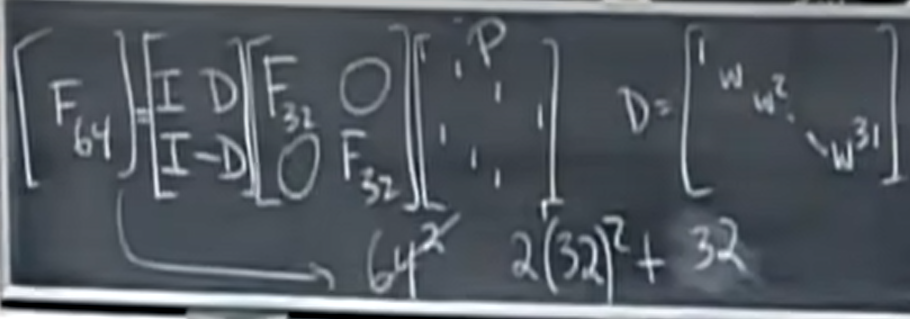 [F₆₄] = [I D; I -D] [F₃₂ O; O F₃₂] [P] D = [1 w w² ⋱ w³¹]
64² 2(32)² + 32